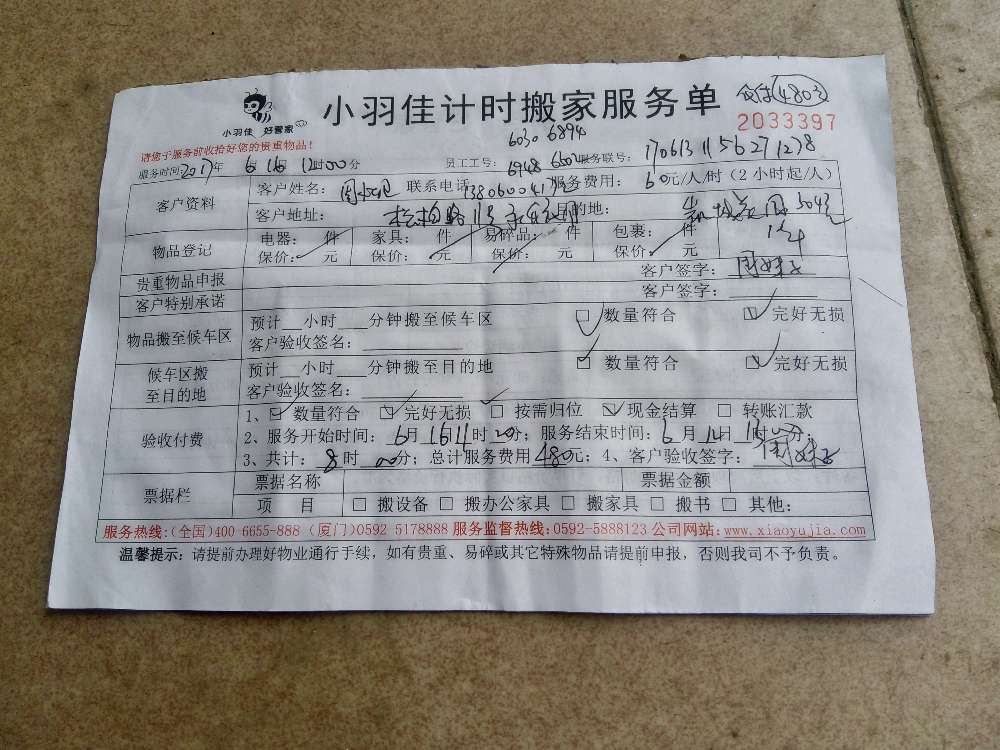 小羽佳计时搬家服务单
小羽佳 好管家
4803
2033397
请您于服务前收拾好您的贵重物品!
6030 6894
服务时间:2017年6月16 12时00分 员工工号: 6948 6602 服务联号: 1706131156271238
客户资料
客户姓名: 联系电话: 服务费用: 60元/人/时(2小时起/人)
客户地址: 松柏路 目的地:
物品登记
电器: 件 家具: 件 易碎品: 件 包裹: 件
保价: 元 保价: 元 保价: 元 保价: 元
贵重物品申报 客户签字:
客户特别承诺 客户签字:
物品搬至候车区
预计__小时___分钟搬至候车区 □ 数量符合 □ 完好无损
客户验收签名:
候车区搬至目的地
预计__小时___分钟搬至目的地 □ 数量符合 □ 完好无损
客户验收签名:
验收付费
1、□ 数量符合 □ 完好无损 □ 按需归位 □ 现金结算 □ 转账汇款
2、服务开始时间: 6月16日11时20分; 服务结束时间: 6月 日 时 分;
3、共计: 8时00分; 总计服务费用480元; 4、客户验收签字:
票据栏
票据名称 票据金额
项 目 □ 搬设备 □ 搬办公家具 □ 搬家具 □ 搬书 □ 其他:
服务热线:(全国)400 6655-888 (厦门)0592 5178888 服务监督热线:0592-5888123 公司网站:www.xiaoyujia.com
温馨提示: 请提前办理好物业通行手续,如有贵重、易碎或其它特殊物品请提前申报,否则我司不予负责。